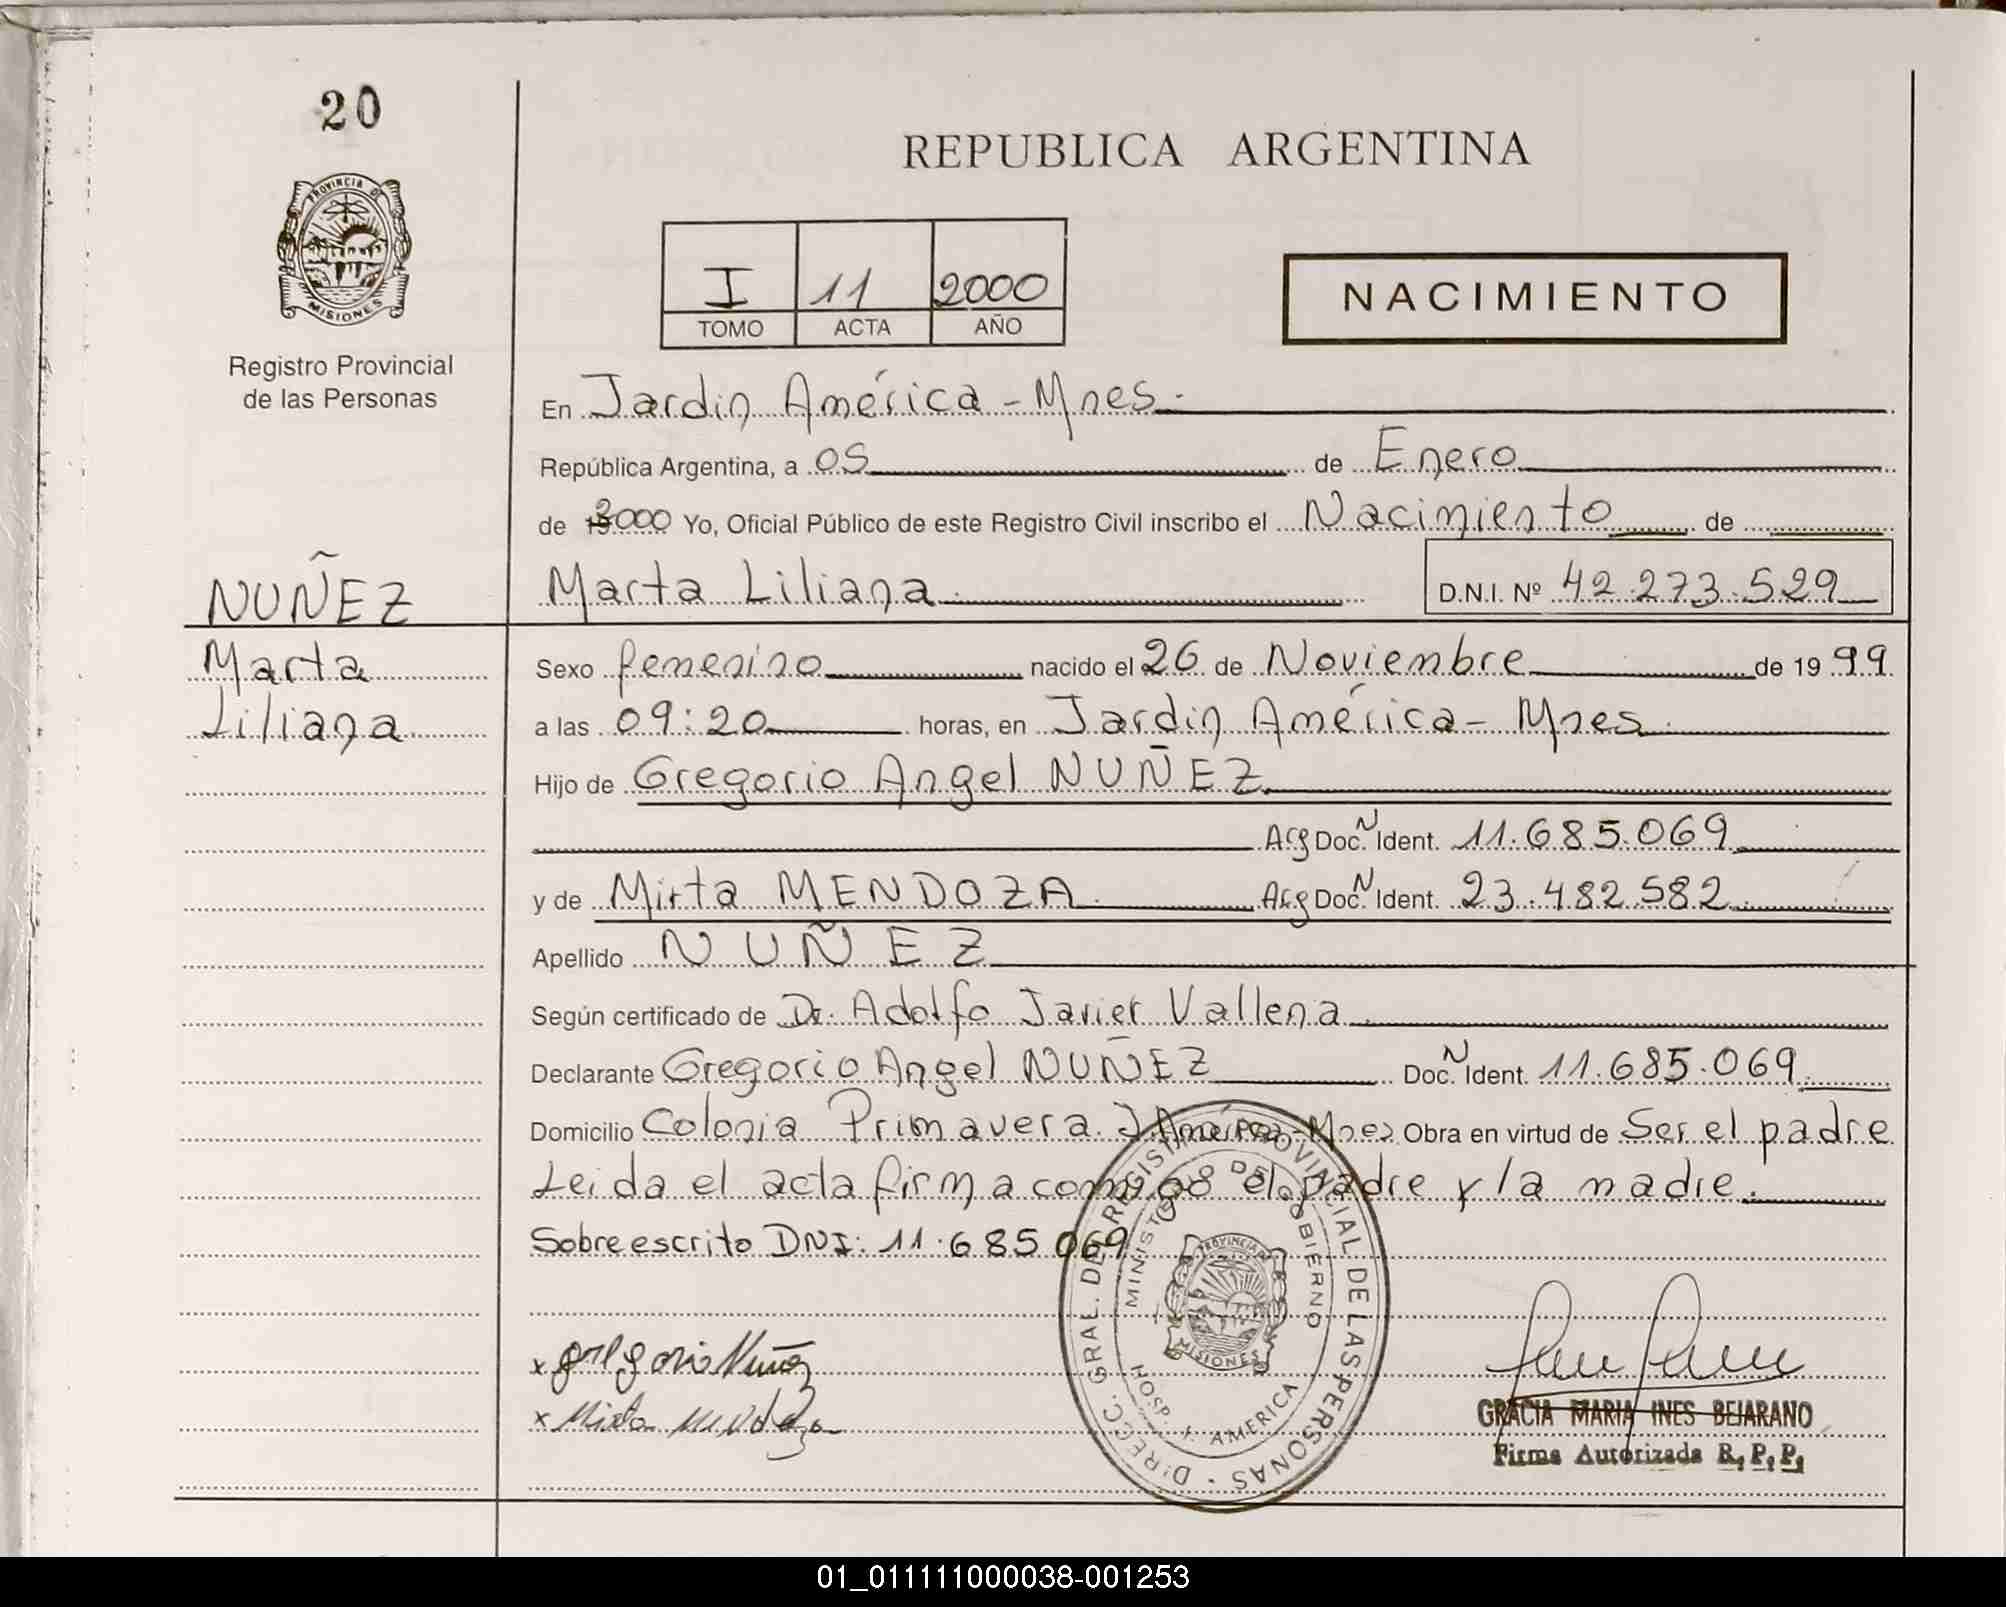 20
REPUBLICA ARGENTINA
PROVINCIA DE
MISIONES
Registro Provincial
de las Personas
I 11 2000
TOMO ACTA AÑO
NACIMIENTO
En Jardin América - Mnes.
República Argentina, a 05 de Enero
de 2000 Yo, Oficial Público de este Registro Civil inscribo el Nacimiento de
NUÑEZ
Marta Liliana D.N.I. Nº 42.273.529
Marta
Sexo femenino nacido el 26 de Noviembre de 1999
Liliana
a las 09:20 horas, en Jardin América - Mnes.
Hijo de Gregorio Angel NUÑEZ
Arg Doc. N Ident. 11.685.069
y de Mirta MENDOZA Arg Doc. N Ident. 23.482.582
Apellido NUÑEZ
Según certificado de Dr. Adolfo Javier Vallena
Declarante Gregorio Angel NUÑEZ Doc. N Ident. 11.685.069
Domicilio Colonia Primavera J. América - Mnes Obra en virtud de Ser el padre
Leida el acta firma conmigo el padre y la madre.
Sobreescrito DNI: 11.685.069
DIRECC. GRAL. DE REGISTRO PROVINCIAL DE LAS PERSONAS
MINISTERIO DE GOBIERNO
PROVINCIA DE
MISIONES
HOSP. J. AMERICA
x Gregorio Nuñez
x Mirta Mendoza
GRACIA MARIA INES BEJARANO
Firma Autorizada R. P. P.
01_011111000038-001253